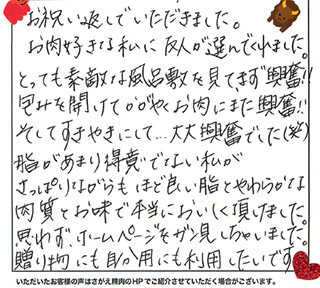 お祝い返しでいただきました。
お肉好きな私に友人が選んでくれました。
とっても素敵な風呂敷を見てまず興奮!!
包みを開けてかがやくお肉にまた興奮!!
そしてすきやきにして…大大興奮でした(笑)
脂があまり得意でない私が
さっぱりながらもほど良い脂とやわらかな
肉質とお味で本当においしく頂けました。
思わず、ホームページをガン見しちゃいました。
贈り物にも自分用にも利用したいです
いただいたお客様の声はさがえ精肉のHPでご紹介させていただく場合がございます。